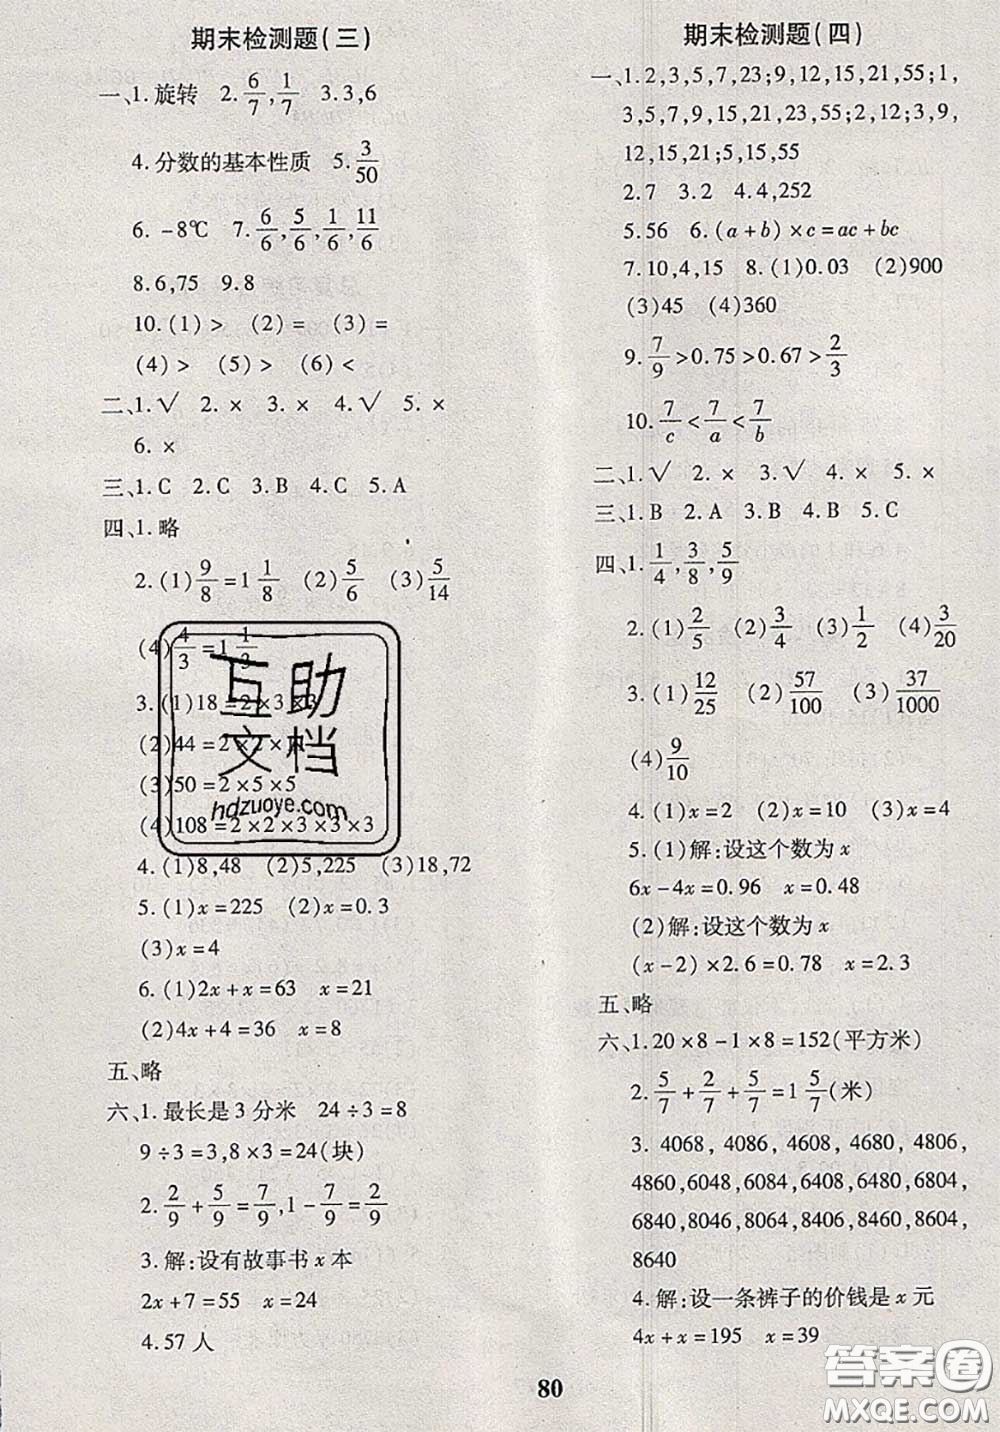 期末检测题(三)
一、1.旋转 2.6/7,1/7 3.3,6
4.分数的基本性质 5.3/50
6.-8℃ 7.6/6,5/6,1/6,11/6
8.6,75 9.8
10.(1)> (2)= (3)=
(4)> (5)> (6)<
二、1.√ 2.× 3.× 4.√ 5.×
6.×
三、1.C 2.C 3.B 4.C 5.A
四、1.略
2.(1)9/8=1 1/8 (2)5/6 (3)5/14
(4)4/3=1 1/3
3.(1)18=2×3×3
(2)44=2×2×11
(3)50=2×5×5
(4)108=2×2×3×3×3
4.(1)8,48 (2)5,225 (3)18,72
5.(1)x=225 (2)x=0.3
(3)x=4
6.(1)2x+x=63 x=21
(2)4x+4=36 x=8
五、略
六、1.最长是3分米 24÷3=8
9÷3=3,8×3=24(块)
2.2/9+5/9=7/9,1-7/9=2/9
3.解:设有故事书x本
2x+7=55 x=24
4.57人
期末检测题(四)
一、1.2,3,5,7,23;9,12,15,21,55;1,
3,5,7,9,15,21,23,55;2,12;3,9,
12,15,21;5,15,55
2.7 3.2 4.4,252
5.56 6.(a+b)×c=ac+bc
7.10,4,15 8.(1)0.03 (2)900
(3)45 (4)360
9.7/9>0.75>0.67>2/3
10.7/c<7/a<7/b
二、1.√ 2.× 3.√ 4.× 5.×
三、1.B 2.A 3.B 4.B 5.C
四、1.1/4,3/8,5/9
2.(1)2/5 (2)3/4 (3)1/2 (4)3/20
3.(1)12/25 (2)57/100 (3)37/1000
(4)9/10
4.(1)x=2 (2)x=10 (3)x=4
5.(1)解:设这个数为x
6x-4x=0.96 x=0.48
(2)解:设这个数为x
(x-2)×2.6=0.78 x=2.3
五、略
六、1.20×8-1×8=152(平方米)
2.5/7+2/7+5/7=1 5/7(米)
3.4068,4086,4608,4680,4806,
4860,6048,6084,6408,6480,6804,
6840,8046,8064,8406,8460,8604,
8640
4.解:设一条裤子的价钱是x元
4x+x=195 x=39
80
互助
文档
hdzuoye.com
答案圈
MXQE.COM